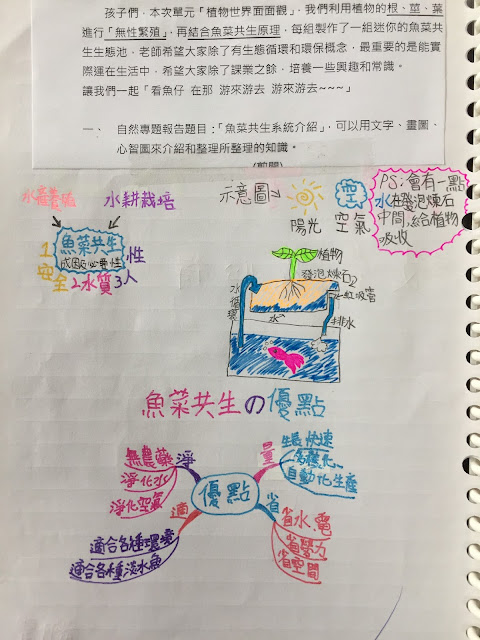 孩子們，本次單元「植物世界面面觀」，我們利用植物的根、莖、葉
進行「無性繁殖」，再結合魚菜共生原理，每組製作了一組迷你的魚菜共
生生態池，老師希望大家除了有生態循環和環保概念，最重要的是能實
際運在生活中，希望大家除了課業之餘，培養一些興趣和常識。
讓我們一起「看魚仔 在那 游來游去 游來游去~~~」
一、 自然專題報告題目：「魚菜共生系統介紹」，可以用文字、畫圖、
心智圖來介紹和整理所整理的知識。
水產養殖
水耕栽培
魚菜共生
成因&必要性
1安全2水質3人性
示意圖
陽光
空氣
PS:會有一點
水在發泡煉石
中間,給植物
吸收
植物
發泡煉石
虹吸管
水循環
水
排水
魚菜共生の優點
優點
淨
無農藥
淨化水
淨化空氣
量
生長快速
多樣化
自動化生產
適
適合各種環境
適合各種淡水魚
省
省水電
省勞力
省空間